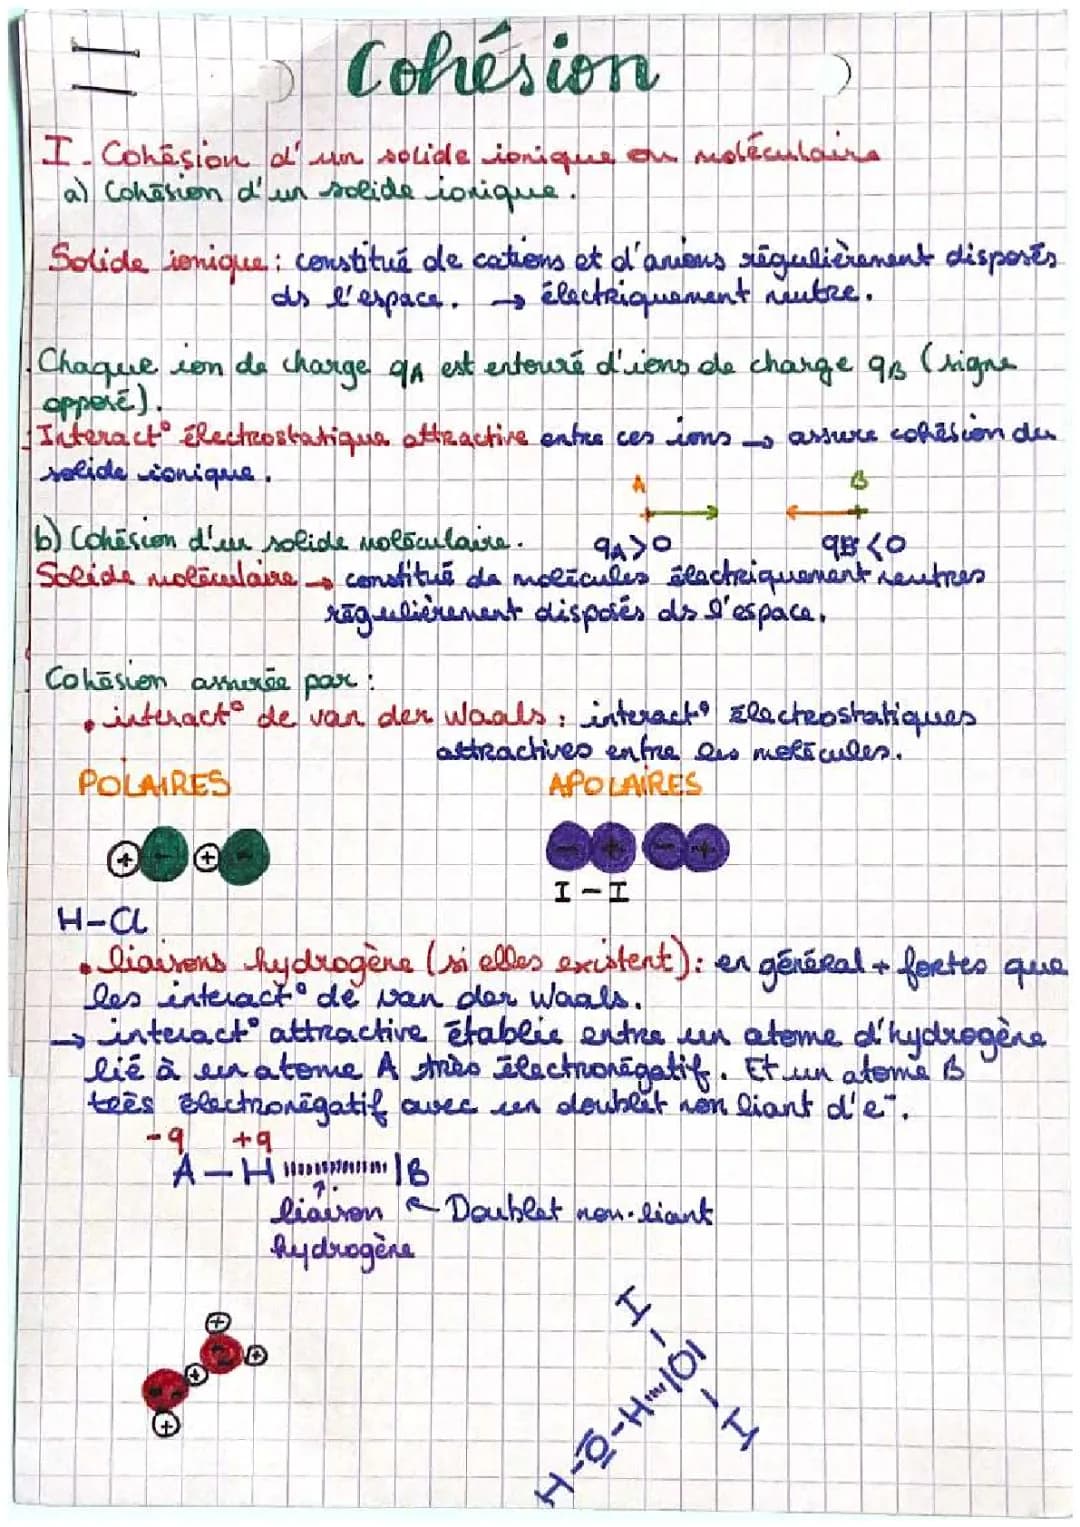 Cohésion
I. Cohésion d'un solide ionique ou moléculaire
a) Cohésion d'un solide ionique.
Solide ionique : constitué de cations et d'anions régulièrement disposés
ds l'espace. → électriquement neutre.
Chaque ion de charge qA est entouré d'ions de charge qB (signe
opposé).
Interact° électrostatique attractive entre ces ions → assure cohésion du
solide ionique.
A B
b) Cohésion d'un solide moléculaire. qA>0 qB<0
Solide moléculaire → constitué de molécules électriquement neutres
régulièrement disposés ds l'espace.
Cohésion assurée par :
• interact° de van der Waals : interact° électrostatiques
attractives entre les molécules.
POLAIRES APOLAIRES
+ - + - - + - +
I-I
H-Cl
• liaisons hydrogène (si elles existent) : en général + fortes que
les interact° de van der Waals.
→ interact° attractive établie entre un atome d'hydrogène
lié à un atome A très électronégatif. Et un atome B
très électronégatif avec un doublet non liant d'e-.
-q +q
A-H ıııııııııııı |B
liaison Doublet non-liant
hydrogène
H-O-H···|O|
H
H